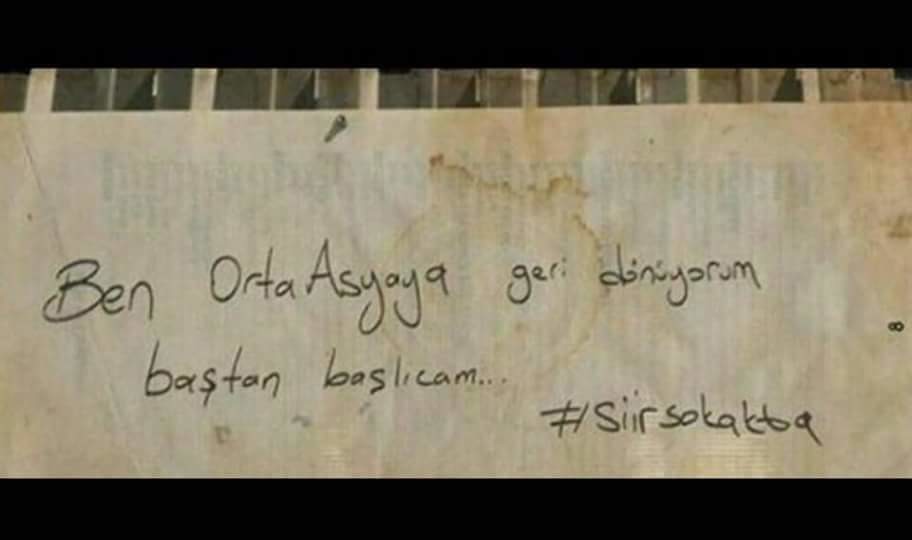 Ben Orta Asyaya geri dönüyorum
baştan başlıcam...
#siirsokakta